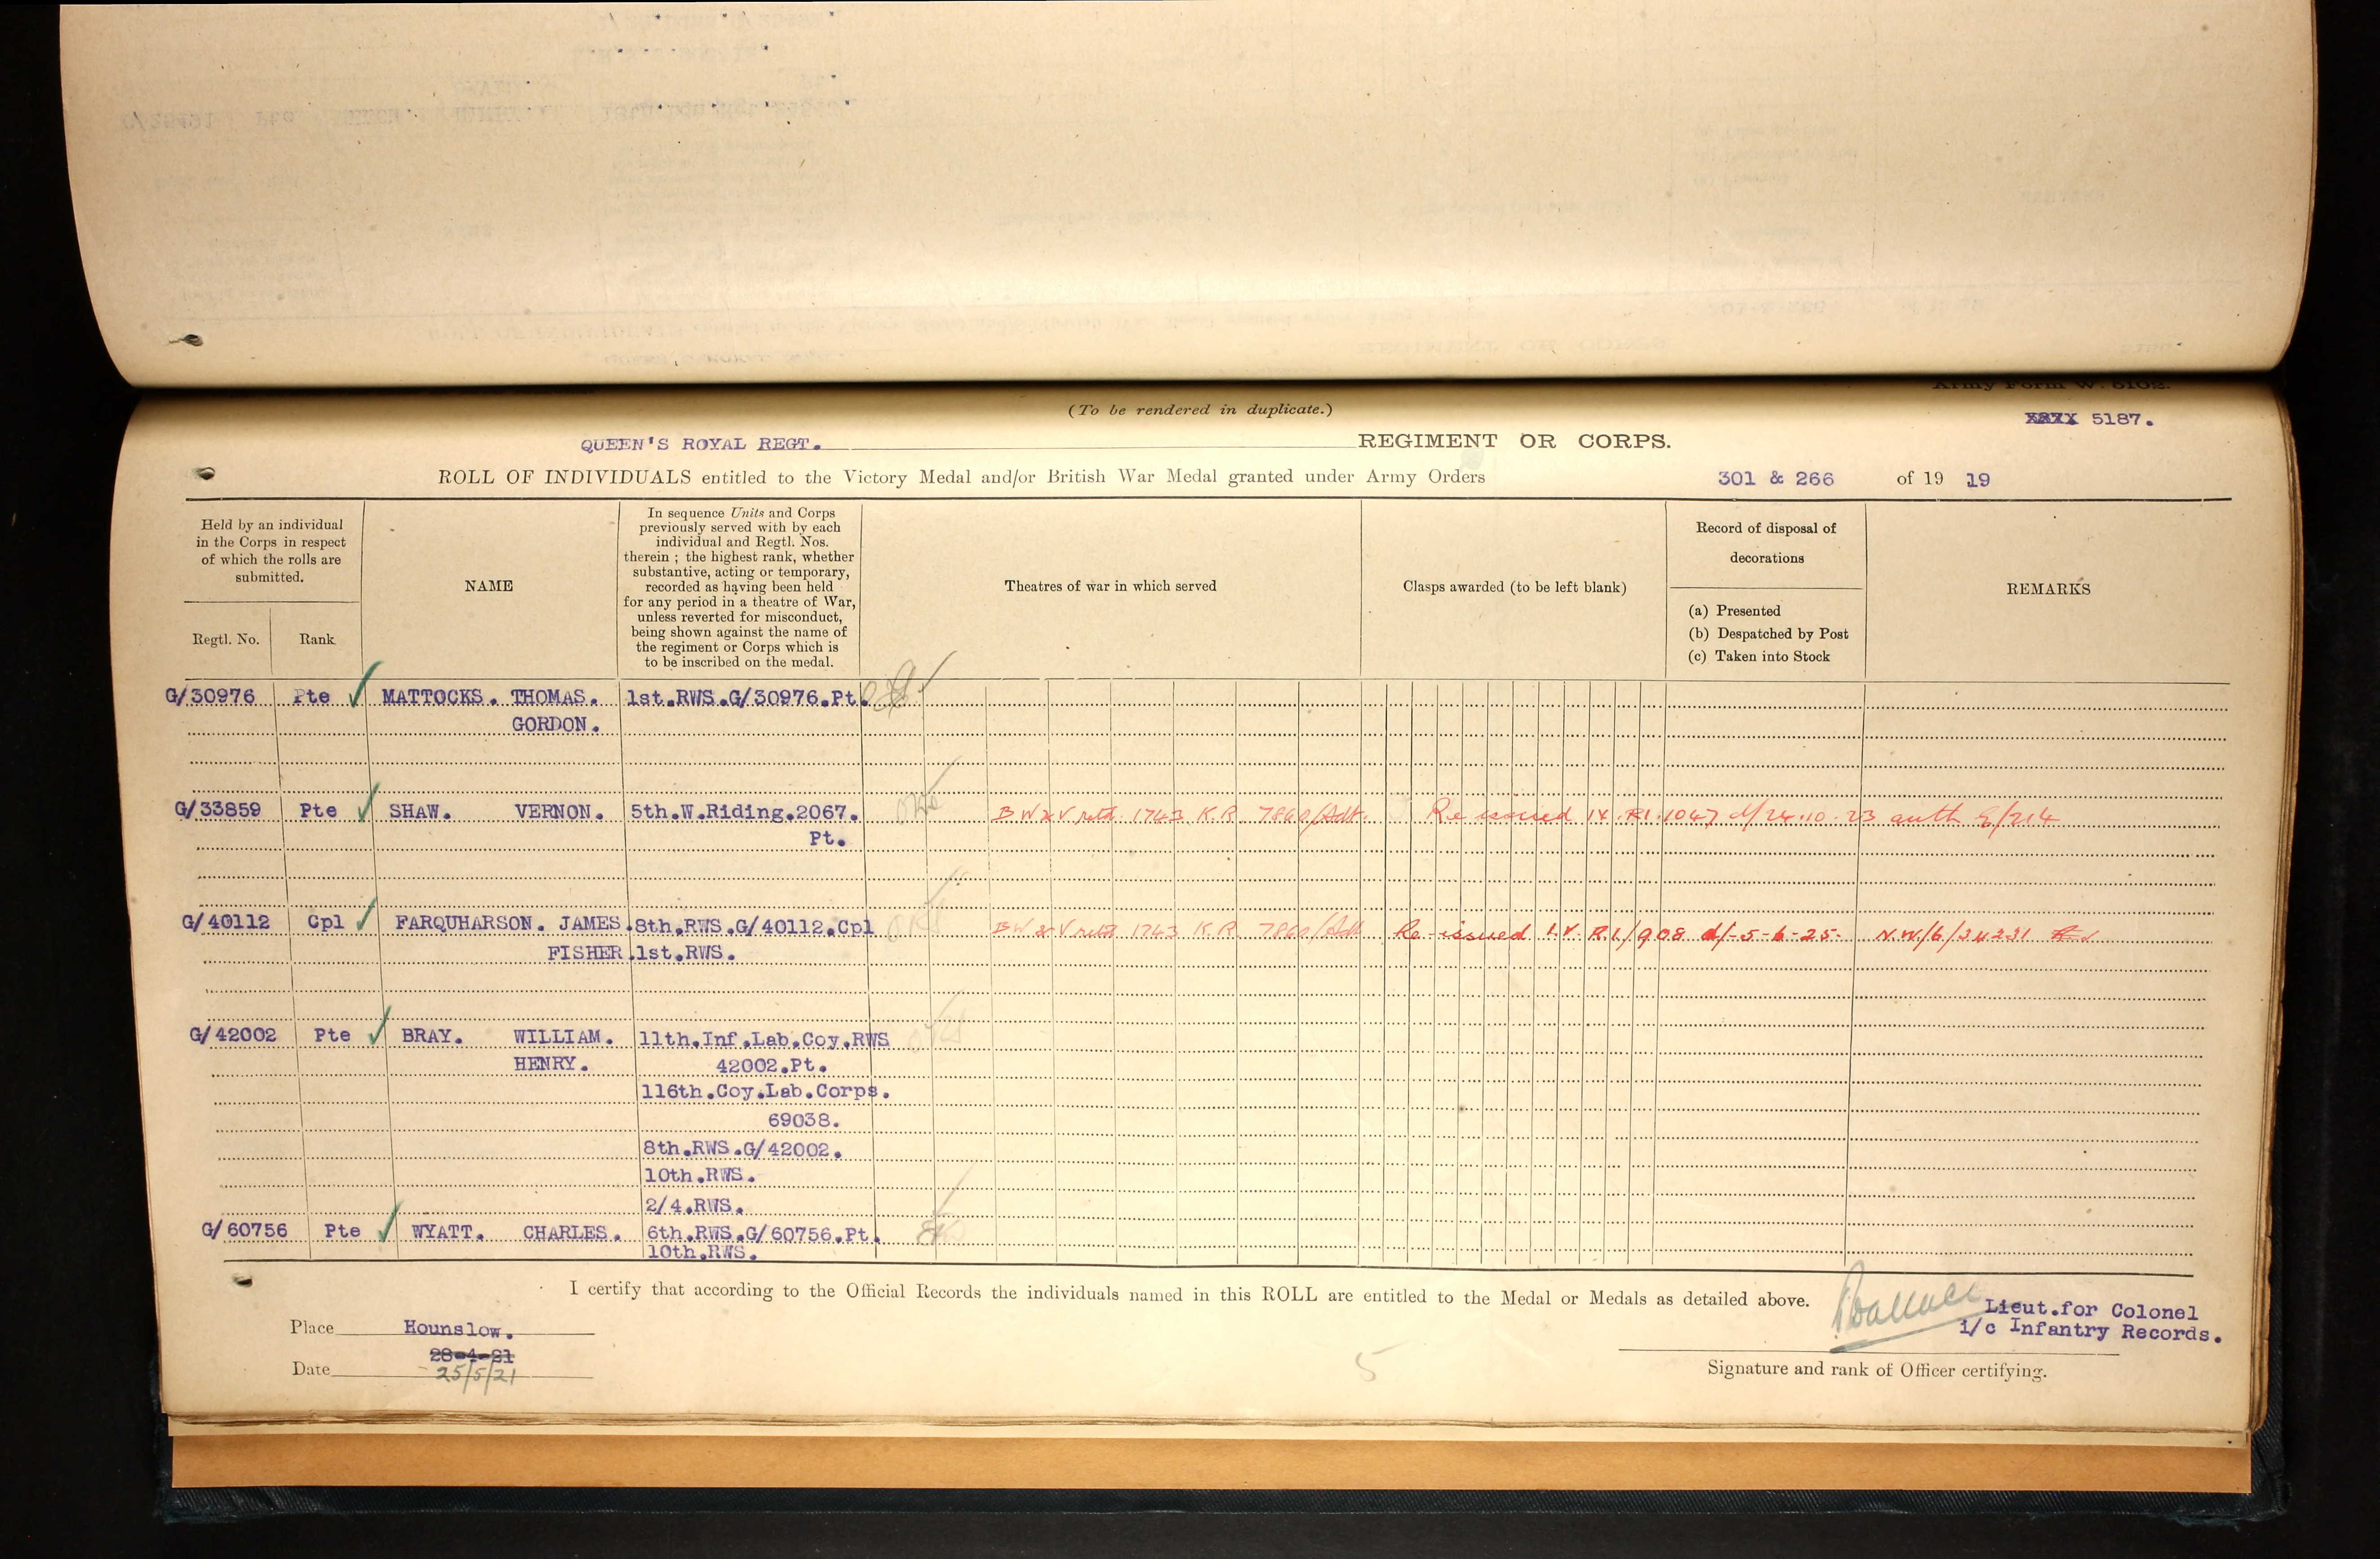 Army Form W. 5102.
(To be rendered in duplicate.)
5187.
QUEEN'S ROYAL REGT. REGIMENT OR CORPS.
ROLL OF INDIVIDUALS entitled to the Victory Medal and/or British War Medal granted under Army Orders 301 & 266 of 19 19
Held by an individual
in the Corps in respect
of which the rolls are
submitted.
Regtl. No.
Rank
NAME
In sequence Units and Corps
previously served with by each
individual and Regtl. Nos.
therein ; the highest rank, whether
substantive, acting or temporary,
recorded as having been held
for any period in a theatre of War,
unless reverted for misconduct,
being shown against the name of
the regiment or Corps which is
to be inscribed on the medal.
Theatres of war in which served
Clasps awarded (to be left blank)
Record of disposal of
decorations
(a) Presented
(b) Despatched by Post
(c) Taken into Stock
REMARKS
G/30976 Pte ✓ MATTOCKS. THOMAS. 1st.RWS.G/30976.Pt.
GORDON.
G/33859 Pte ✓ SHAW. VERNON. 5th.W.Riding.2067. B W & V retd 1743 K.R 7860/Adt. Re issued IV.RI.1047 d/24.10.23 auth E/214
Pt.
G/40112 Cpl ✓ FARQUHARSON. JAMES. 8th.RWS.G/40112.Cpl B W & V retd 1743 K.R 7860/Adt Re-issued I.V. R.I./908 d/-5-6-25- N.W./6/34231
FISHER. 1st.RWS.
G/42002 Pte ✓ BRAY. WILLIAM. 11th.Inf.Lab.Coy.RWS
HENRY. 42002.Pt.
116th.Coy.Lab.Corps.
69038.
8th.RWS.G/42002.
10th.RWS.
2/4.RWS.
G/60756 Pte ✓ WYATT. CHARLES. 6th.RWS.G/60756.Pt.
10th.RWS.
I certify that according to the Official Records the individuals named in this ROLL are entitled to the Medal or Medals as detailed above.
Place Hounslow.
28-4-21
Date 25/5/21
5
Lieut.for Colonel
i/c Infantry Records.
Signature and rank of Officer certifying.